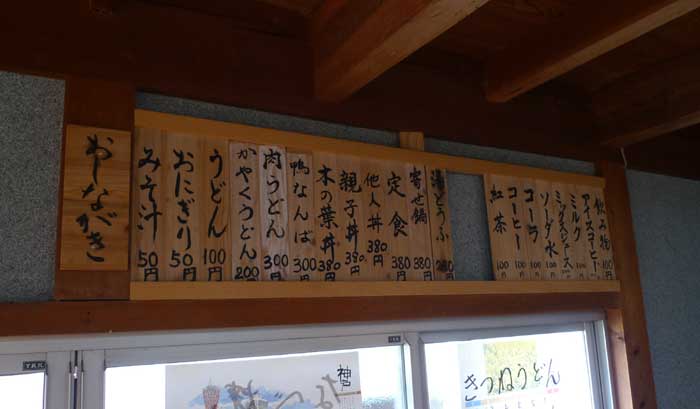 おしながき
みそ汁 50円
おにぎり 50円
うどん 100円
かやくうどん 200円
肉うどん 300円
鴨なんば 300円
木の葉丼 380
親子丼 390
他人丼 380円
定食 380円
寄せ鍋 380円
湯どうふ 円
紅茶 100円
コーヒー 100円
コーラ 100円
ソーダ水 100円
ミックスジュース
ミルク 100円
アイスコーヒー
飲み物 100
YKK
YKK
神戸
きつねうどん